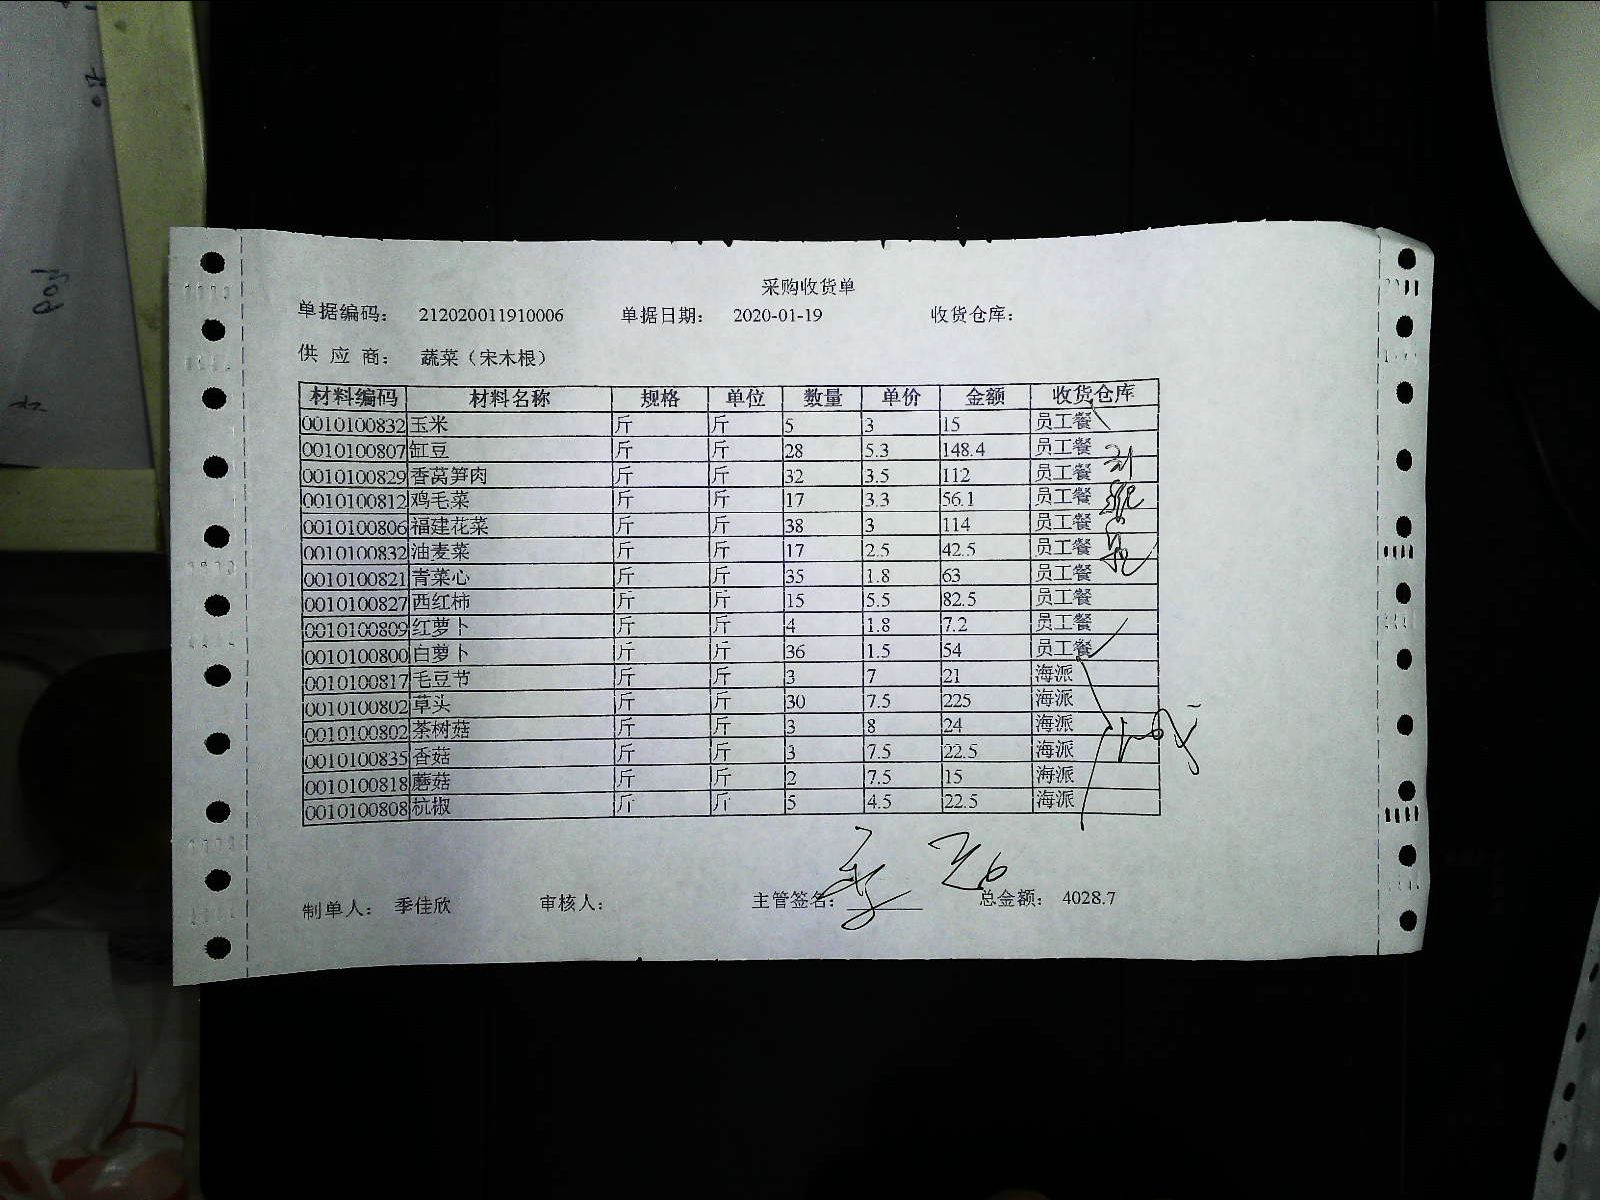 采购收货单
单据编码： 212020011910006 单据日期： 2020-01-19 收货仓库：
供 应 商： 蔬菜（宋木根）
材料编码 材料名称 规格 单位 数量 单价 金额 收货仓库
0010100832 玉米 斤 斤 5 3 15 员工餐
0010100807 缸豆 斤 斤 28 5.3 148.4 员工餐
0010100829 香莴笋肉 斤 斤 32 3.5 112 员工餐
0010100812 鸡毛菜 斤 斤 17 3.3 56.1 员工餐
0010100806 福建花菜 斤 斤 38 3 114 员工餐
0010100832 油麦菜 斤 斤 17 2.5 42.5 员工餐
0010100821 青菜心 斤 斤 35 1.8 63 员工餐
0010100827 西红柿 斤 斤 15 5.5 82.5 员工餐
0010100809 红萝卜 斤 斤 4 1.8 7.2 员工餐
0010100800 白萝卜 斤 斤 36 1.5 54 员工餐
0010100817 毛豆节 斤 斤 3 7 21 海派
0010100802 草头 斤 斤 30 7.5 225 海派
0010100802 茶树菇 斤 斤 3 8 24 海派
0010100835 香菇 斤 斤 3 7.5 22.5 海派
0010100818 蘑菇 斤 斤 2 7.5 15 海派
0010100808 杭椒 斤 斤 5 4.5 22.5 海派
制单人： 季佳欣 审核人： 主管签名： 总金额： 4028.7